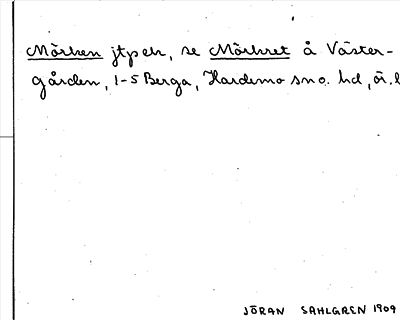 Mörksen jtpeln, se Mörkret å Väster-
gården, 1-5 Berga, Hardemo sn o. hd, ör. l
JÖRAN SAHLGREN 1909